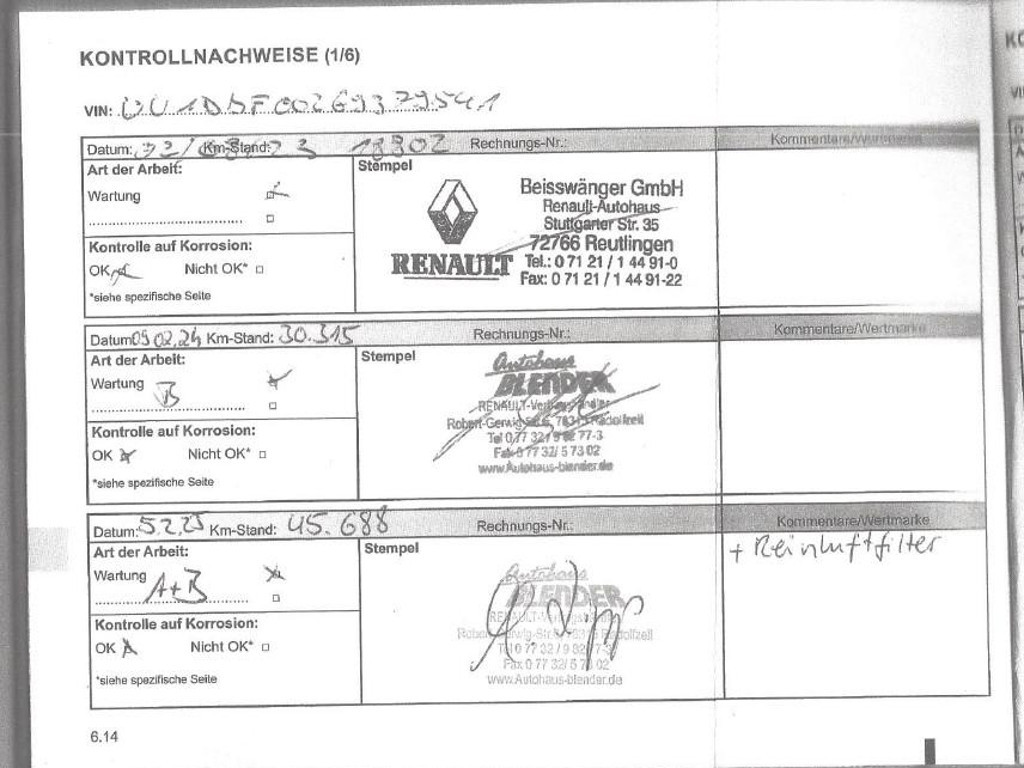 KONTROLLNACHWEISE (1/6)
VIN:
Datum: Km-Stand: 18302 Rechnungs-Nr.: Kommentare/Wertmarke
Art der Arbeit:
Stempel
Wartung
Kontrolle auf Korrosion:
OK Nicht OK*
*siehe spezifische Seite
RENAULT
Beisswänger GmbH
Renault-Autohaus
Stuttgarter Str. 35
72766 Reutlingen
Tel.: 0 71 21 / 1 44 91-0
Fax: 0 71 21 / 1 44 91-22
Datum: 09.02.24 Km-Stand: 30.315 Rechnungs-Nr.: Kommentare/Wertmarke
Art der Arbeit:
Stempel
Wartung B
Kontrolle auf Korrosion:
OK Nicht OK*
*siehe spezifische Seite
Autohaus
BLENDER
RENAULT-
Robert-Gerwig-Str. Radolfzell
Tel 0 77 32 / 9 82 77-3
Fax 0 77 32/ 5 73 02
www.Autohaus-blender.de
Datum: 5.2.25 Km-Stand: 45.688 Rechnungs-Nr.: Kommentare/Wertmarke
Art der Arbeit:
Stempel
+ Reinluftfilter
Wartung A+B
Kontrolle auf Korrosion:
OK Nicht OK*
*siehe spezifische Seite
Autohaus
BLENDER
Radolfzell
www.Autohaus-blender.de
6.14